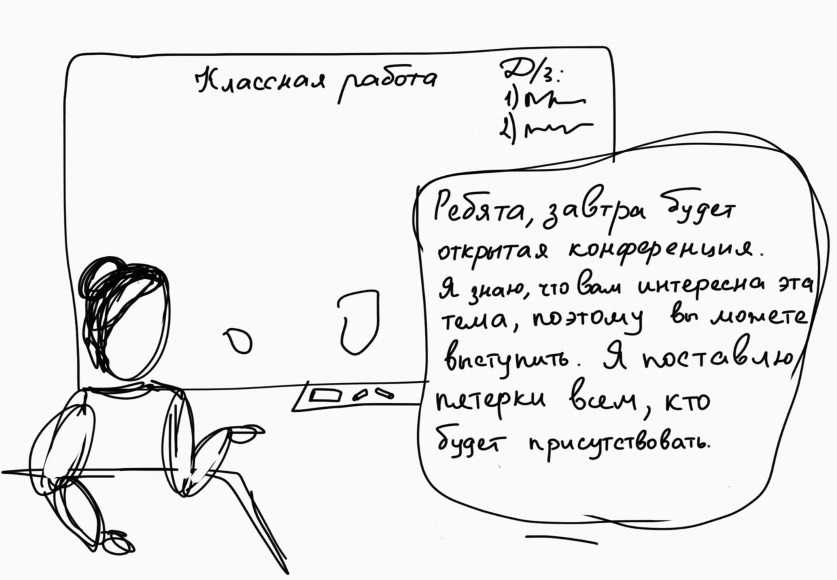 Классная работа
Д/з:
1)
2)
Ребята, завтра будет
открытая конференция.
Я знаю, что вам интересна эта
тема, поэтому вы можете
выступить. Я поставлю
пятерки всем, кто
будет присутствовать.